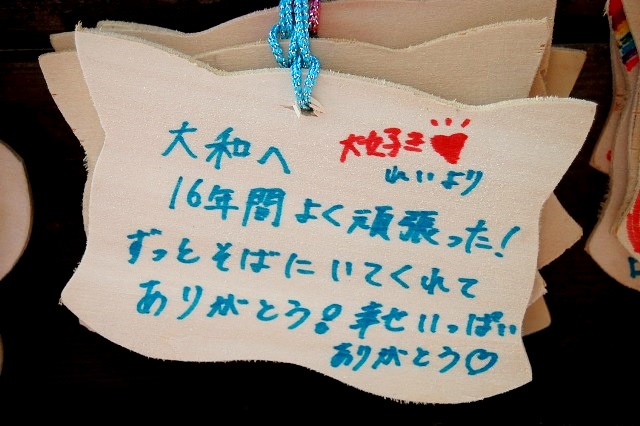 大和へ
大好き♥
れいより
16年間よく頑張った!
ずっとそばにいてくれて
ありがとう! 幸せいっぱい
ありがとう♡